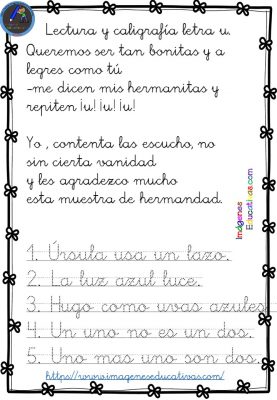 Lectura y caligrafía letra u.
Queremos ser tan bonitas y a
legres como tú
-me dicen mis hermanitas y
repiten ¡u! ¡u! ¡u!
Yo , contenta las escucho, no
sin cierta vanidad
y les agradezco mucho
esta muestra de hermandad.
Imágenes
Educativas.com
1. Úrsula usa un lazo.
2. La luz azul luce.
3. Hugo como uvas azules.
4. Un uno no es un dos.
5. Uno mas uno son dos.
https://www.imageneseducativas.com/